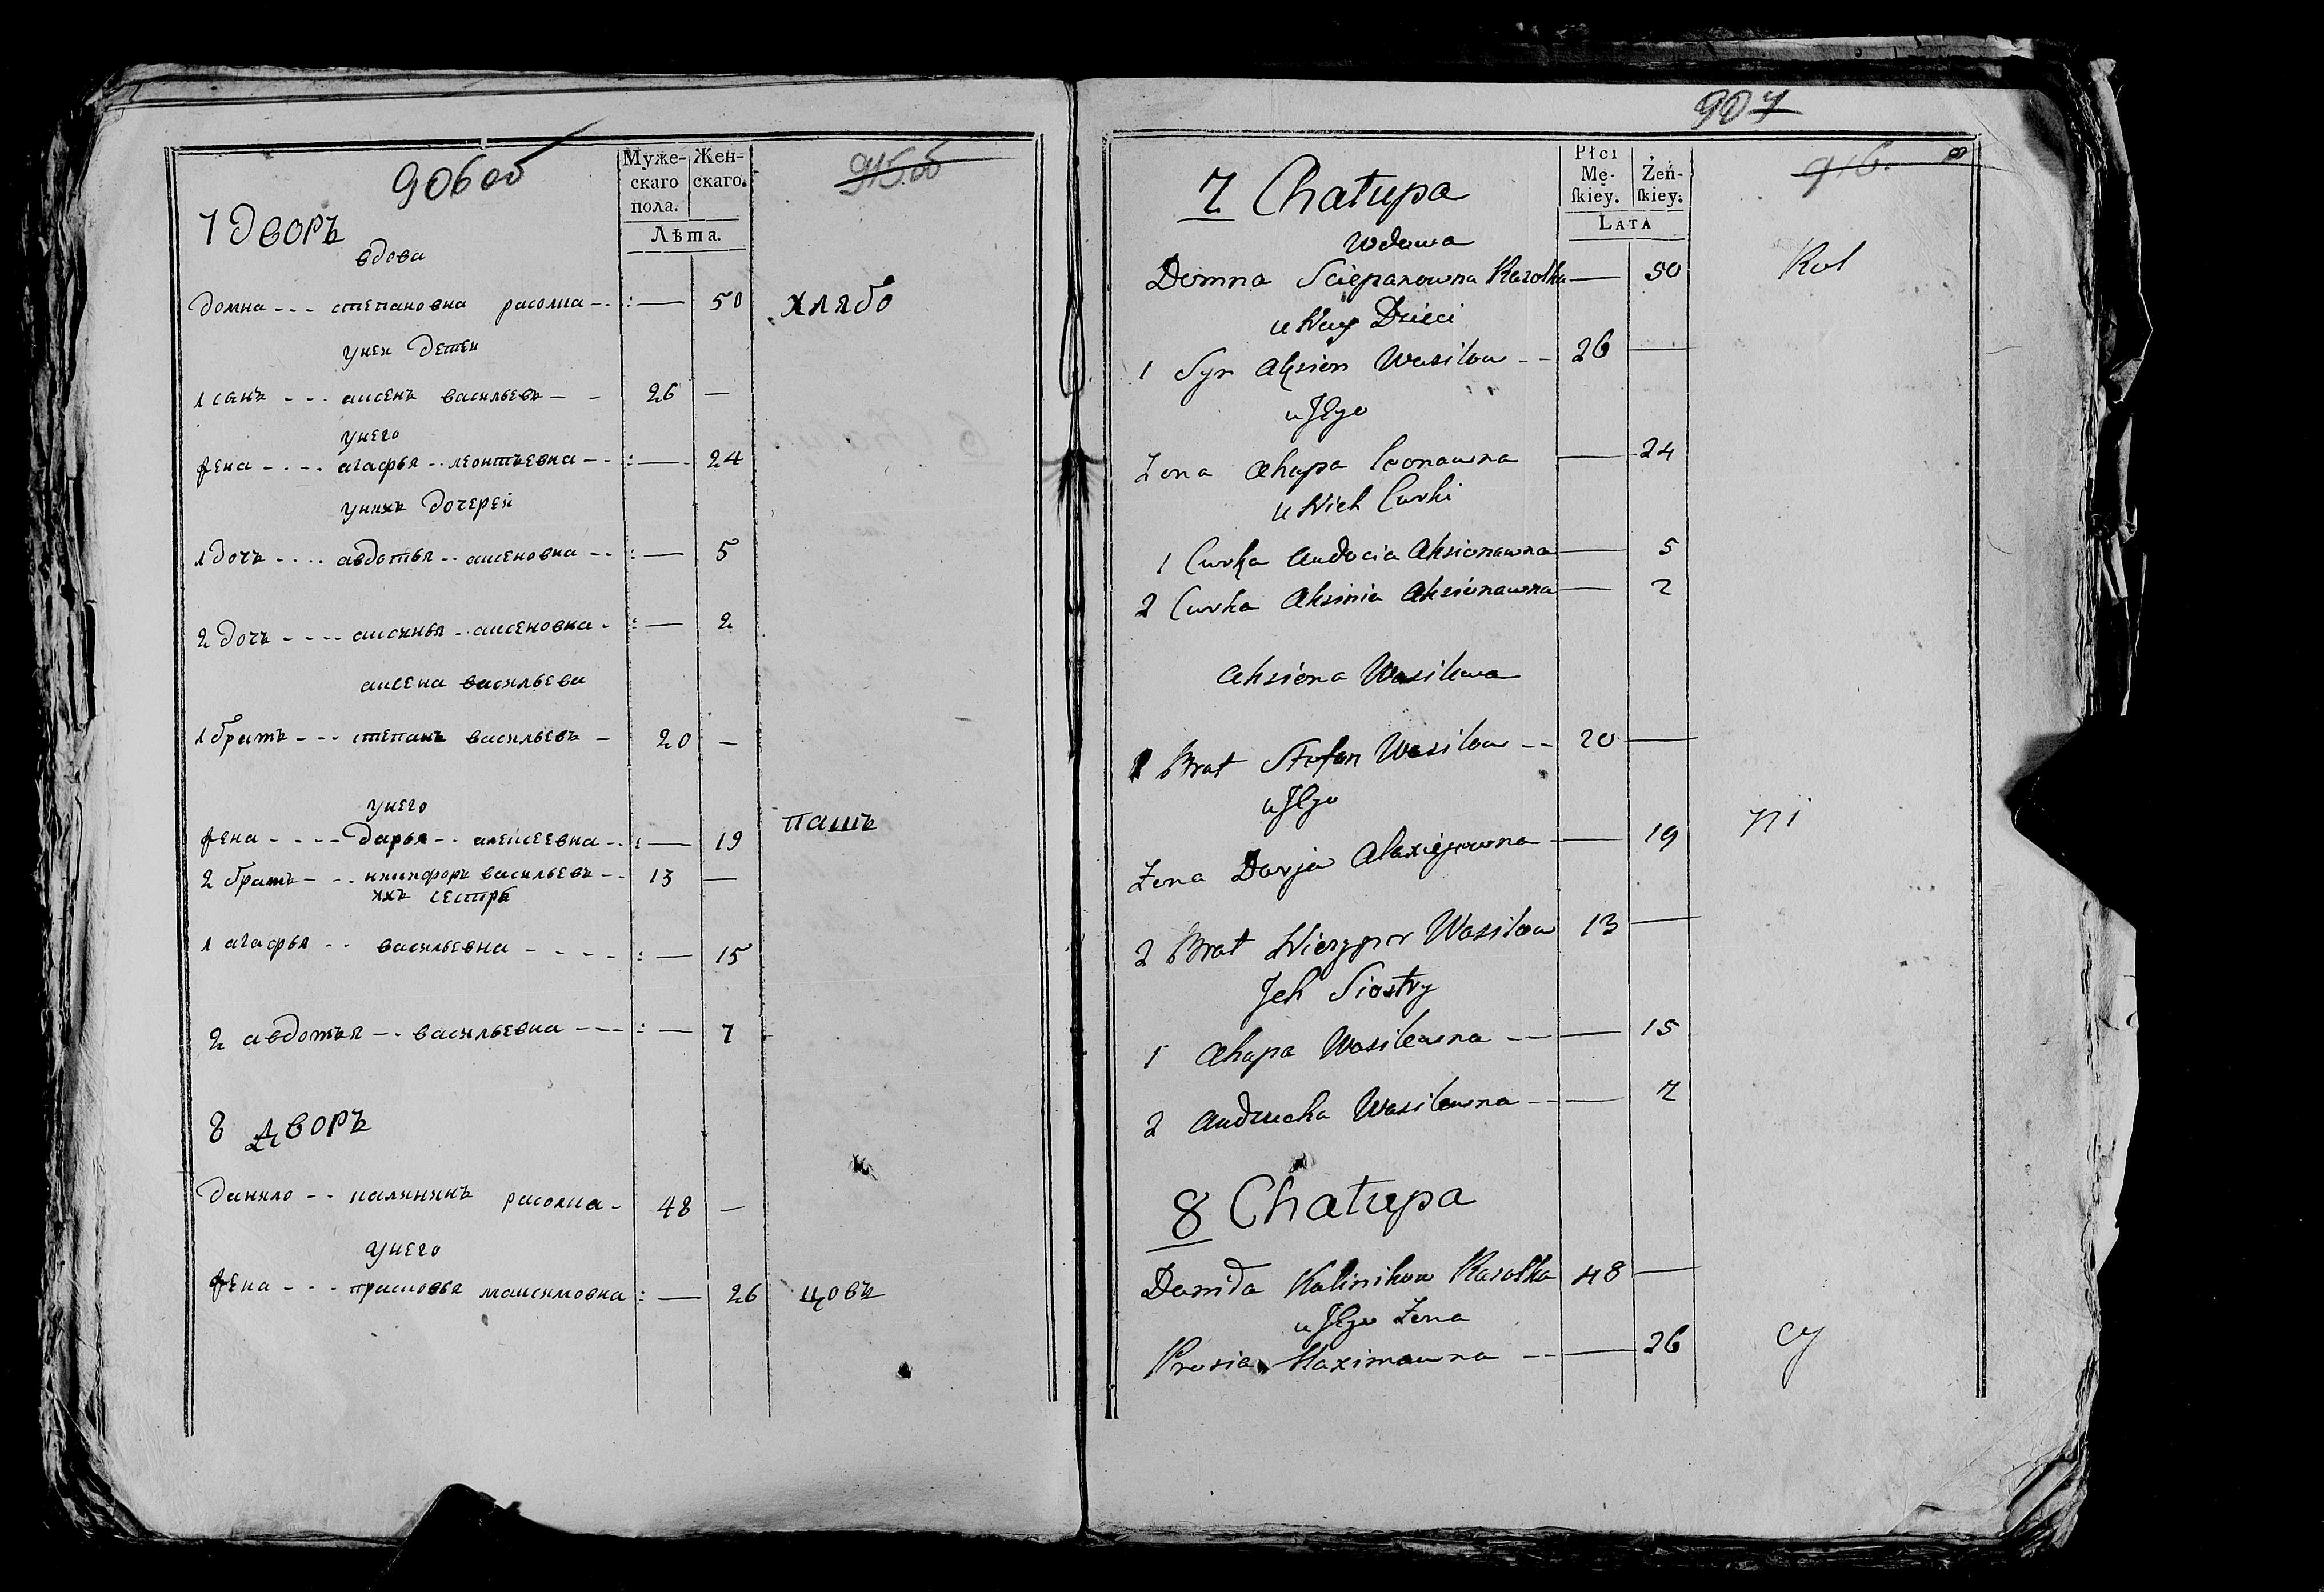 906 об
915 об
Муже- Жен-
скаго скаго.
пола.
Лѣта.
7 дворъ
вдова
домна - - - степановна расолка - - : — 50 хлябо
унея детеи
1 санъ - - - аксенъ васильевъ - - 26 —
унего
жена - - - - агафья - - леонтьевна - - : — 24
унихъ дочерей
1 дочъ - - - - авдотья - - аксеновна - - : — 5
2 дочъ - - - - аксинья - - аксеновна - : — 2
аксена васильева
1 братъ - - - степанъ васильевъ - 20 —
унего
жена - - - - дарья - - алексеевна - - : — 19 пашъ
2 братъ - - - никифоръ васильевъ - - 13 —
ихъ сестръ
1 агафья - - васильевна - - - - : — 15
2 авдотья - - васильевна - - - : — 7
8 дворъ
данило - - калининъ расолка - 48 —
унего
жена - - - прасковья максимовна : — 26 цовъ
907
916.
Płci
Mę- Żeń-
ſkiey. ſkiey.
LATA
7 Chałupa
Wdowa
Domna Sciepanowna Rasołka — 50 Rol
u Niey Dzieci
1 Syn Aksion Wasilow - - 26 —
u Jego
Zona Ahapa Leonawna — 24
u Nich Curki
1 Curka Audocia Aksionawna — 5
2 Curka Aksinia Aksionawna — 2
Aksiona Wasilewa
1 Brat Stefan Wasilow - - 20 —
u Jego
Zona Darja Alaxiejewna — 19 ni
2 Brat Nieczypor Wasilow 13 —
Jch Siostry
1 Ahapa Wasilewna - - — 15
2 Audzucha Wasilewna - - — 7
8 Chałupa
Daniła Kalinikow Rasołka 48 —
u Jego Zona
Prosia Maximawna - - — 26 cy